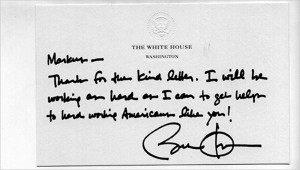 THE WHITE HOUSE
WASHINGTON
Markus—
Thanks for the kind letter. I will be
working as hard as I can to get help
to hard working Americans like you!